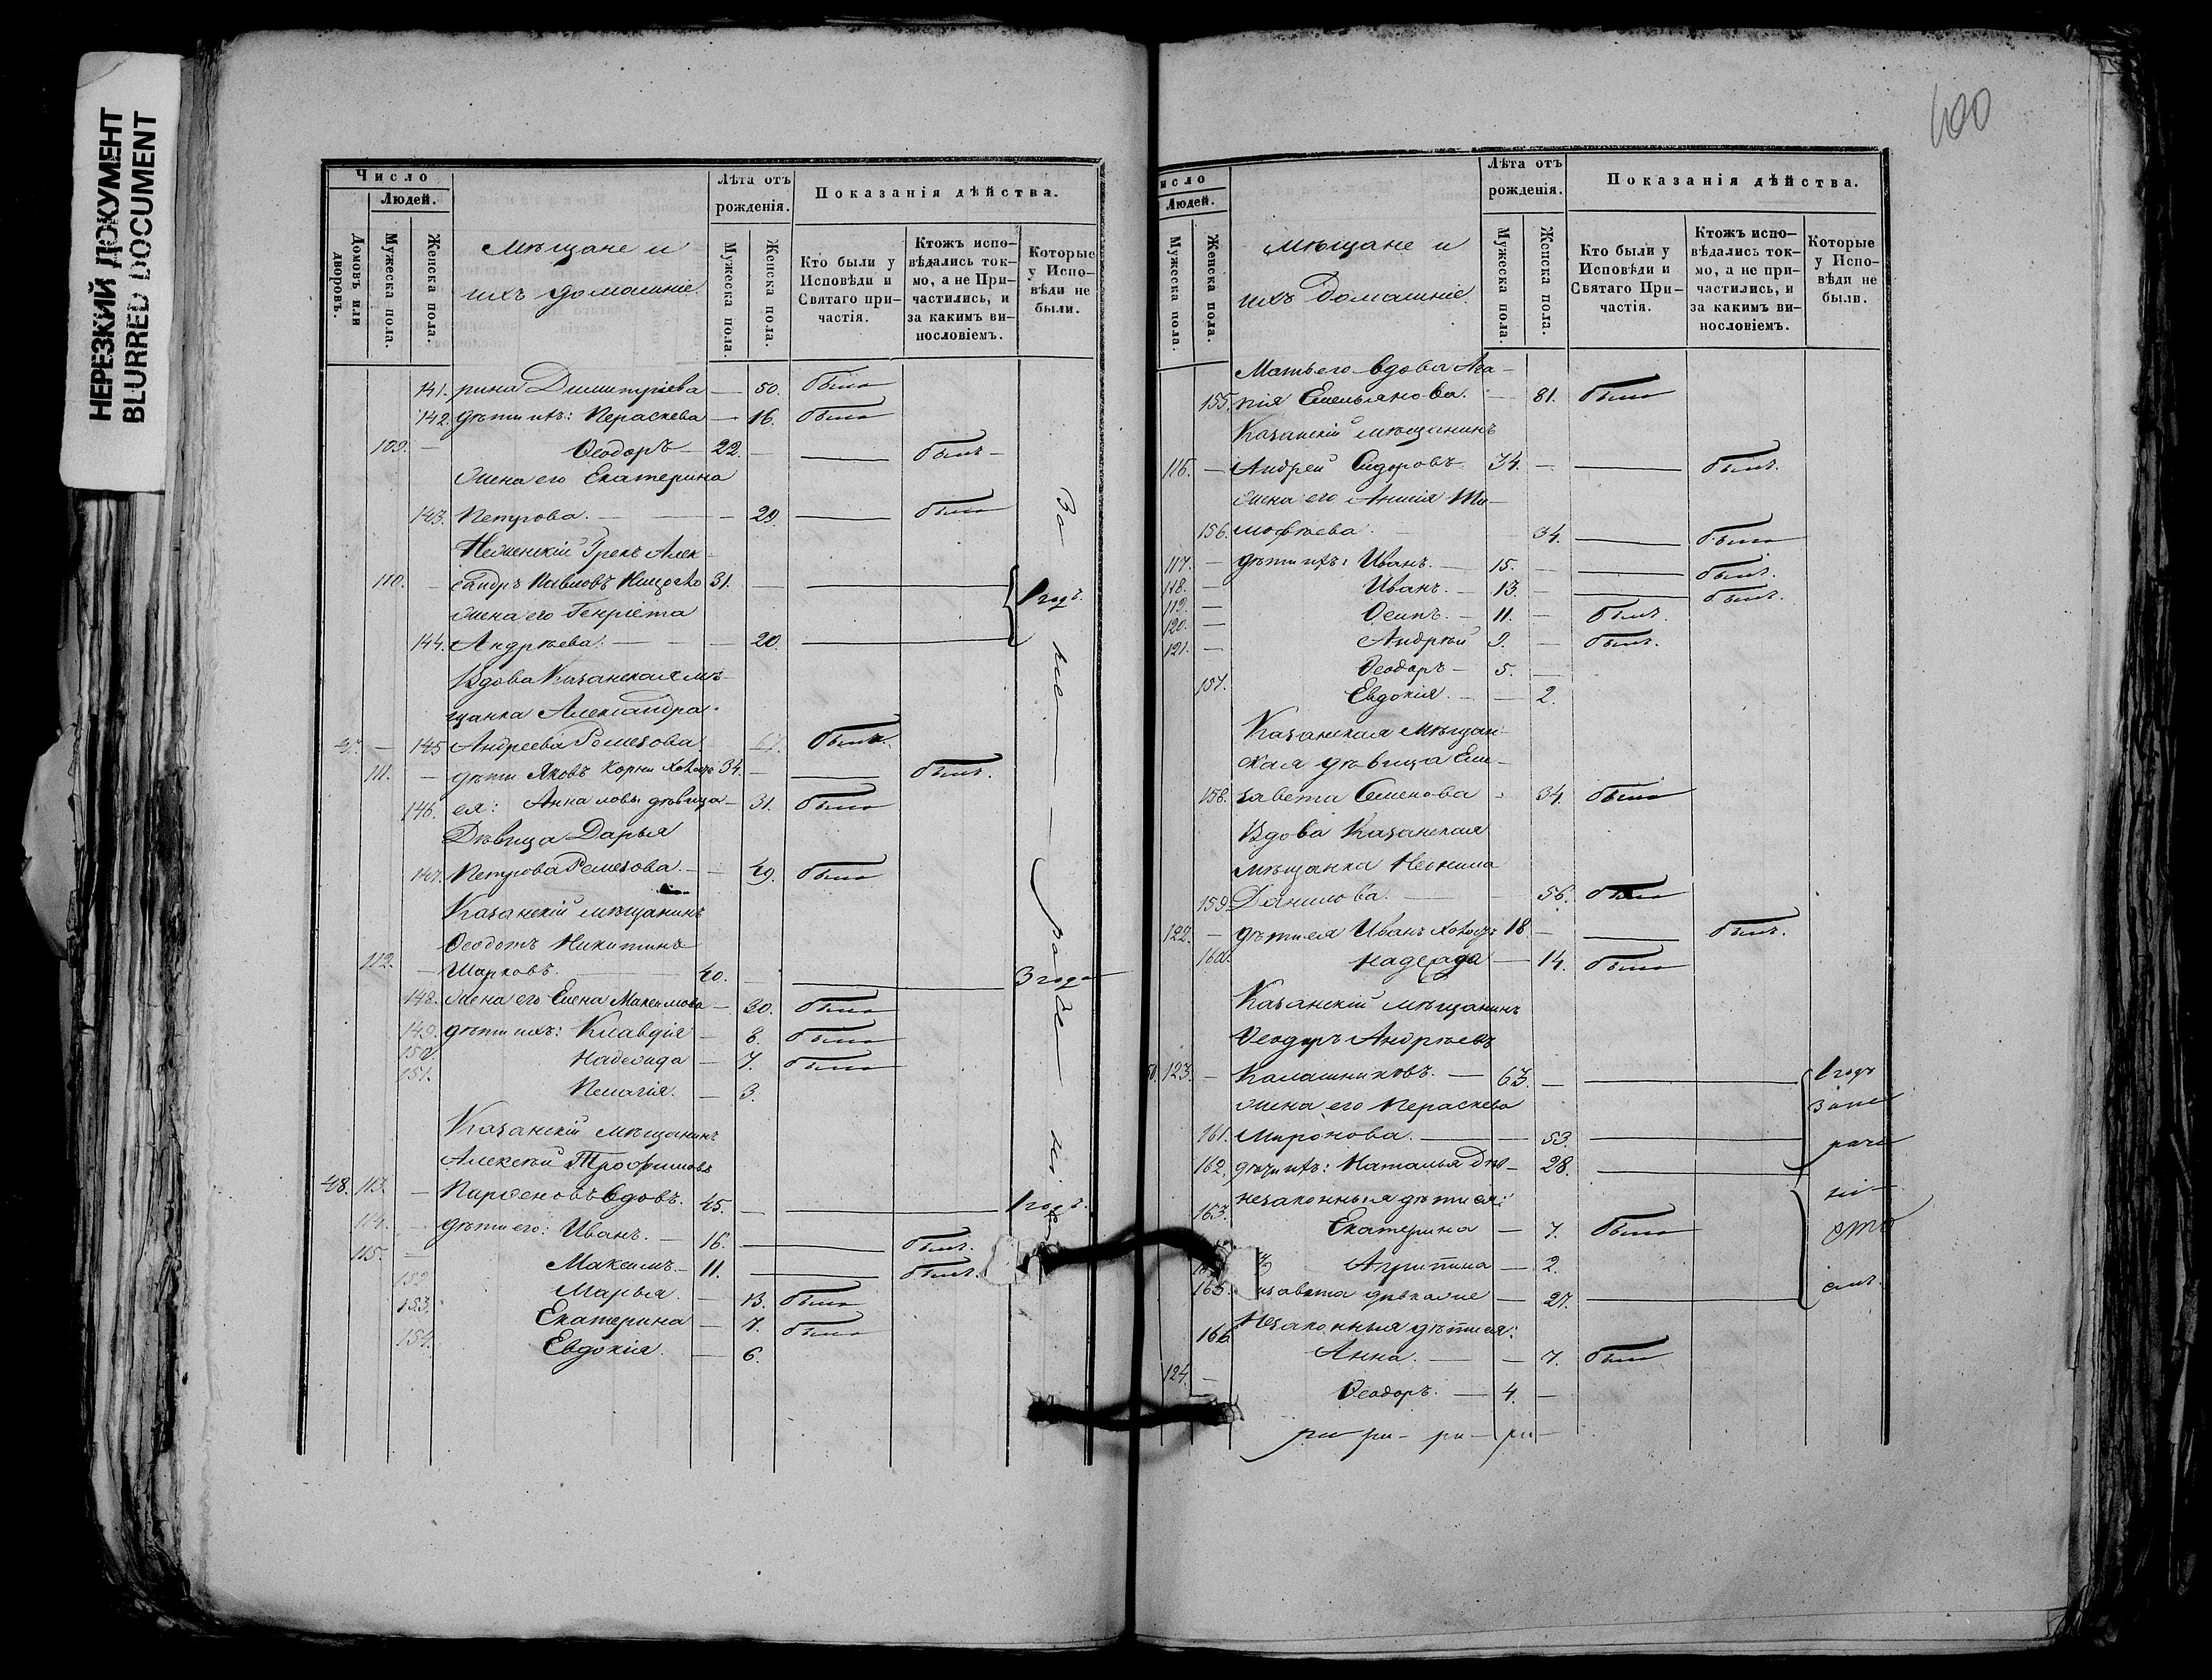 НЕРЕЗКИЙ ДОКУМЕНТ
BLURRED DOCUMENT
400
Число
Людей.
Домовъ или дворовъ.
Мужеска пола.
Женска пола.
Мѣщане и
ихъ домашніе.
Лѣта отъ рожденія.
Мужеска пола.
Женска пола.
Показанія дѣйства.
Кто были у Исповѣди и Святаго при-частія.
Ктожъ испо-вѣдались ток-мо, а не При-частились, и за какимъ ви-нословіемъ.
Которые у Испо-вѣди не были.
141. рина Димитріева — 50. была
142. дѣти ихъ: Параскева — 16. была
109. — Ѳеодоръ — 22. — былъ —
Жена его Екатерина
143. Петрова. — 29. была
Нѣженскій Грекъ Алек-
110. — сандръ Павловъ 31. — 1 годъ.
Жена его Генріета
144. Андрѣева. — 20.
Вдова Казанская мѣ-
щанка Александра
145 Андреева Ремезова.
111. — дѣти Яковъ Корни Холостъ 34. — былъ.
146. ея: Анна ловы дѣвица — 31. была
Дѣвица Дарья
147. Петрова Ремезова. — 49. была
Казанскій мѣщанинъ
Ѳеодотъ Никитинъ
112. — Шарковъ. 40. — 3 года
148. Жена его Елена Максимова — 30. была
149. дѣти ихъ: Клавдія — 8. была
150. Надежда — 7. была
151. Пелагія. — 3.
Казанскій мѣщанинъ
Алексѣй Трофимовъ
48. 113. — Парѳеновъ вдовъ. 45. — 1 годъ.
114. — дѣти его: Иванъ. — 16. былъ.
115. — Максимъ. — 11. былъ.
152. Марья. — 13. была
153. Екатерина — 7. была
154. Евдокія. — 6.
За не — ра
Число
Людей.
Мужеска пола.
Женска пола.
Мѣщане и
ихъ домашніе.
Лѣта отъ рожденія.
Мужеска пола.
Женска пола.
Показанія дѣйства.
Кто были у Исповѣди и Святаго При-частія.
Ктожъ испо-вѣдались ток-мо, а не при-частились, и за какимъ ви-нословіемъ.
Которые у Испо-вѣди не были.
Мать его вдова Ага-
155. пія Емельянова. — 81. была
Казанскій мѣщанинъ
116. — Андрей Сидоровъ. 34. — былъ.
Жена его Анисія Ти-
156. моѳѣева. 34. была
117. — дѣти ихъ: Иванъ. — 15. — былъ.
118. — Иванъ. — 13. — былъ.
119. — Осипъ. — 11. — былъ.
120. — Андрѣй 9. — былъ.
121. — Ѳеодоръ — 5. —
157. Евдокія. — 2.
Казанская мѣщан-
ская дѣвица Ели-
158. завета Семенова — 34. была
Вдова Казанская
мѣщанка Неонила
159 Данилова. 56. была
122. — дѣти ея Иванъ Холостъ 18 — былъ.
160. Надежда — 14. была
Казанскій мѣщанинъ
Ѳеодоръ Андрѣевъ
123. — Калашниковъ. — 63. — 1 годъ
Жена его Параскева
161. Миронова. — 53.
162. дѣти ихъ: Наталья дѣв — 28.
незаконныя дѣти ея:
163. Екатерина — 7. была
Агрипина — 2.
165. изавета дѣвка же — 27.
Незаконныя дѣти ея:
166 Анна. — 7. была
124. — Ѳеодоръ. — 4. —
за не
ра
ні
емъ
ри ри — ри — ри —